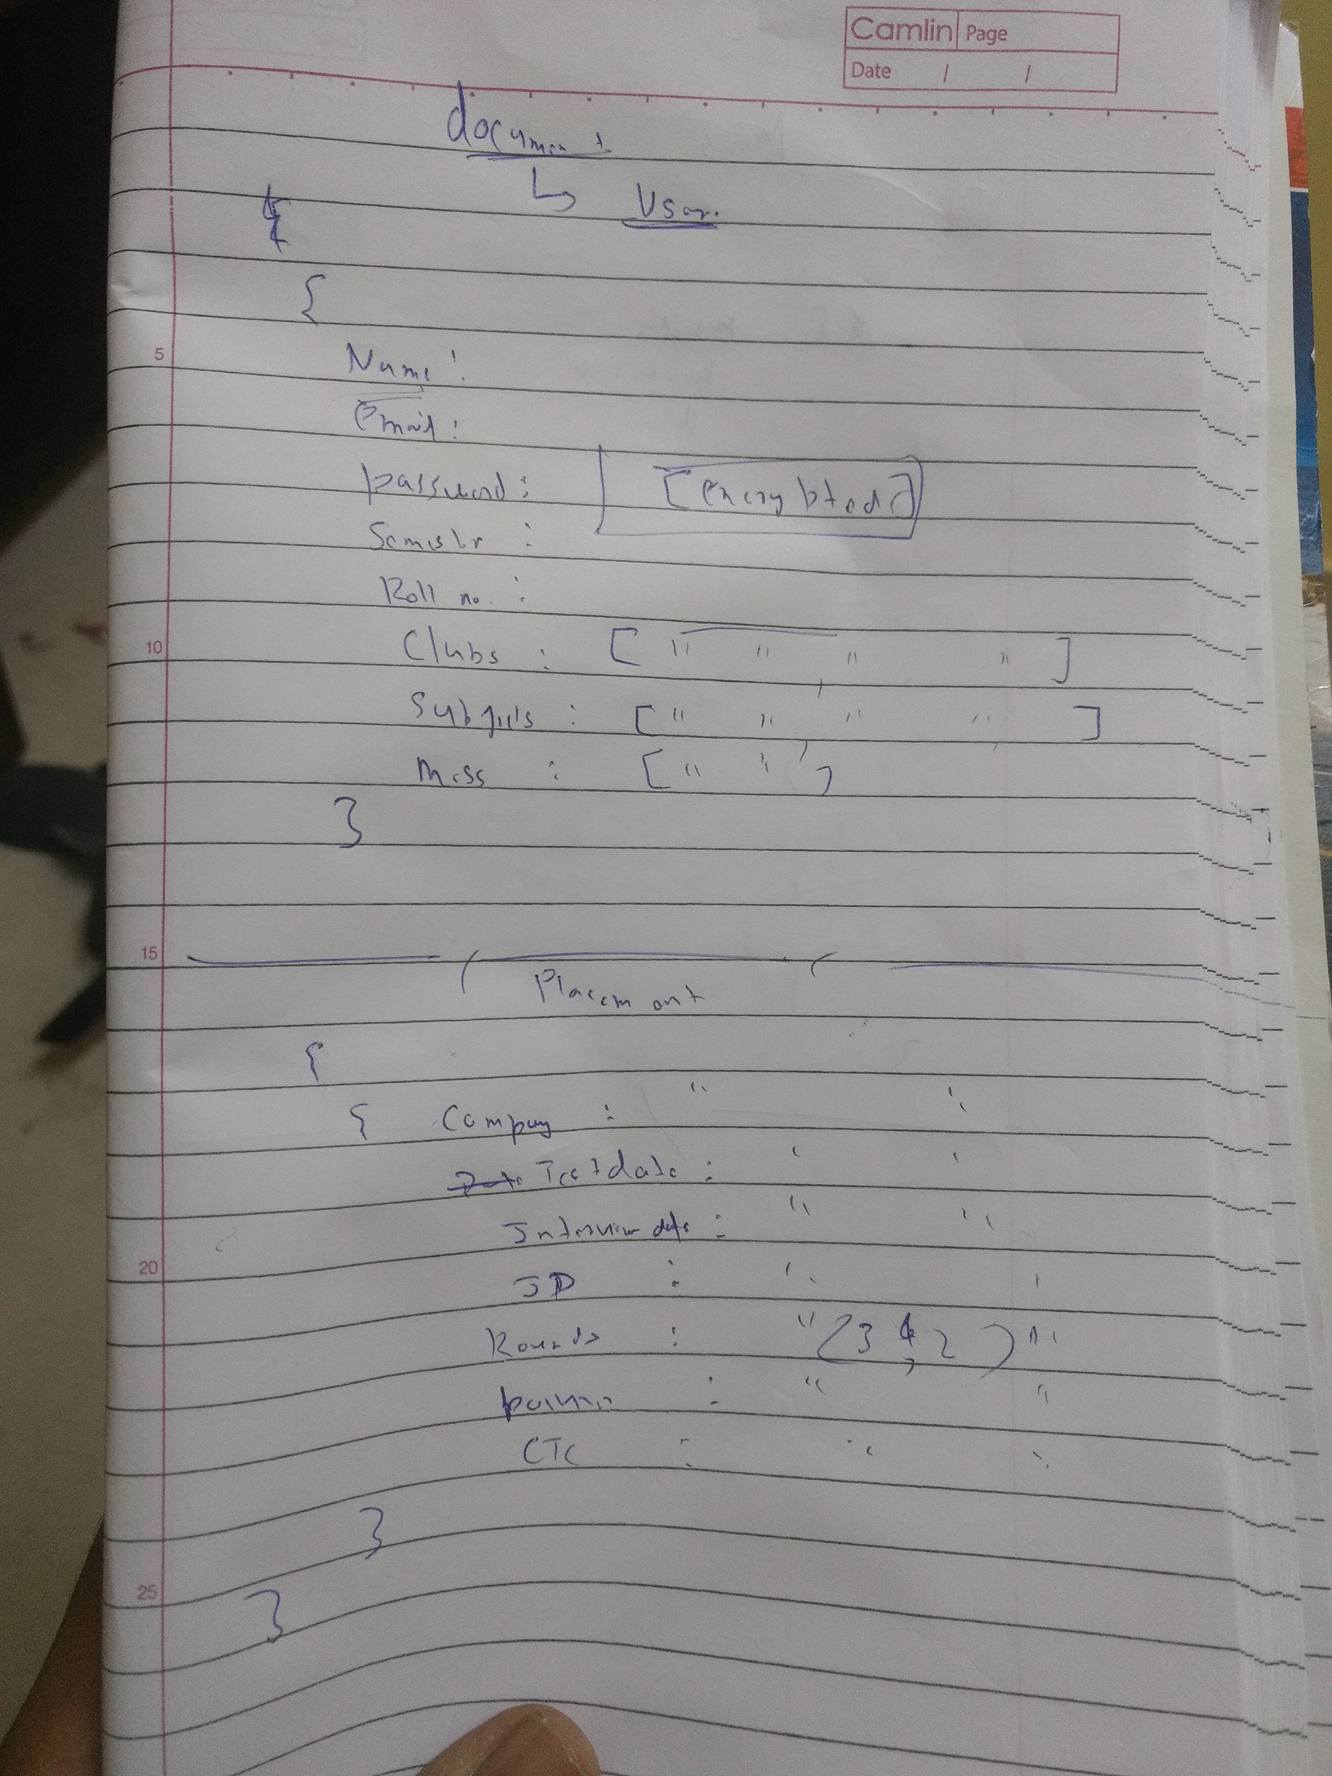 Camlin Page
Date / /
document
↳ User
{
5
Name:
email:
password: [encrybted]
Semister :
Roll no. :
10
Clubs : [ " " " " ]
Subjects : [ " " , " " ]
Mess : [ " " ]
}
15
Placement
{
{ Company : " "
Test date : " "
Interview date : " "
20
JD : " "
Rounds : " (3, 2) "
: " "
CTC : " "
}
25
}